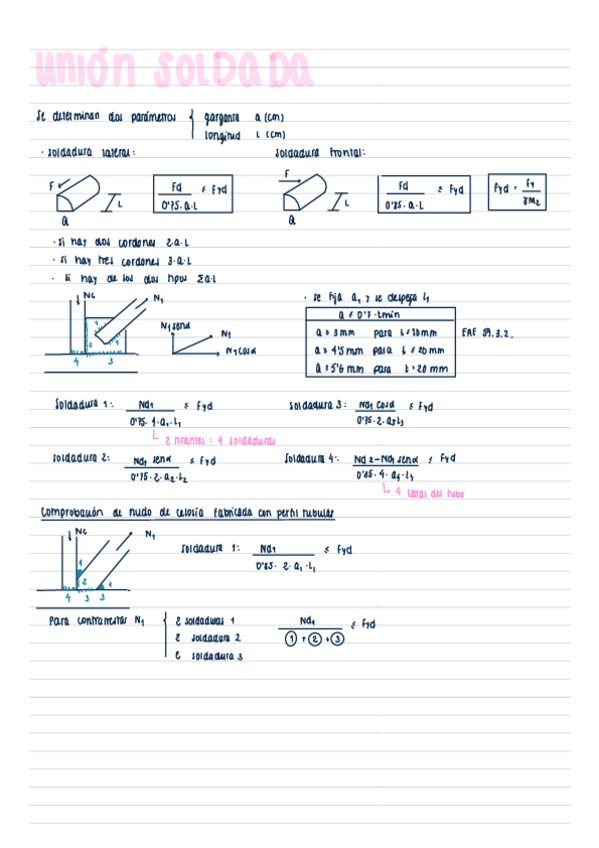 UNIÓN SOLDADA
Se determinan dos parámetros { garganta a (cm)
longitud L (cm)
· Soldadura lateral:
Soldadura frontal:
F L a
Fd / 0'75·a·L ≤ Fyd
F L a
Fd / 0'85·a·L ≤ Fyd
Fyd = Fy / γM2
· Si hay dos cordones 2·a·L
· Si hay tres cordones 3·a·L
· Si hay de los dos tipos Σa·L
Nc N1
1 2
4 3
N1 senα N1
N1 cosα
· Se fija a, y se despeja L1
a ≤ 0'7·tmin
a ≥ 3mm para t<10mm EAE 59.3.2.
a ≥ 4'5mm para t ≤ 20mm
a ≥ 5'6 mm para t>20mm
Soldadura 1: Nd1 / 0'75·4·a1·L1 ≤ Fyd
2 tirantes = 4 soldaduras
Soldadura 3: Nd1 cosα / 0'75·2·a3L3 ≤ Fyd
Soldadura 2: Nd1 senα / 0'75·2·a2·L2 ≤ Fyd
Soldadura 4: Nd2-Nd1 senα / 0'85·4·a4·L4 ≤ Fyd
4 caras del tubo
Comprobación de nudo de celosía fabricada con perfil tubular
Nc N1
1 2 1
4 3 3
Soldadura 1: Nd1 / 0'85·2·a1·L1 ≤ Fyd
Para contrarrestar N1 { 2 soldaduras 1
2 soldadura 2
2 soldadura 3
Nd1 / 1 + 2 + 3 ≤ Fyd